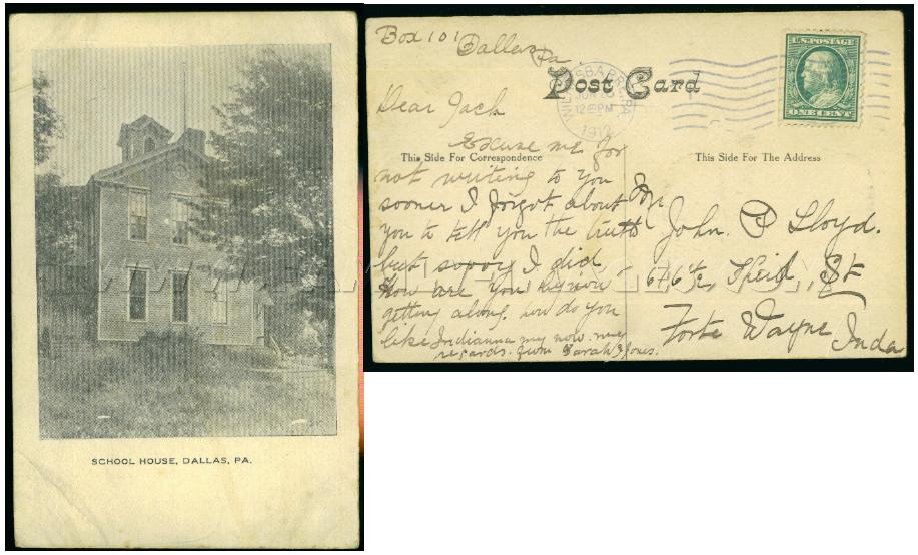 SCHOOL HOUSE, DALLAS, PA.
Box 101 Dallas
Pa
Post Card
WILKES-BARRE, PA.
12 PM
1912
U.S. POSTAGE
ONE CENT
This Side For Correspondence
This Side For The Address
Dear Jack
Excuse me for
not writing to you
sooner I forgot about
you to tell you the truth
but sorry I did
How are you
getting along, how do you
like Indianna my now. my
regards. from Sarah Jones.
John. P Lloyd.
646 1/2, St
Forte Wayne
Inda